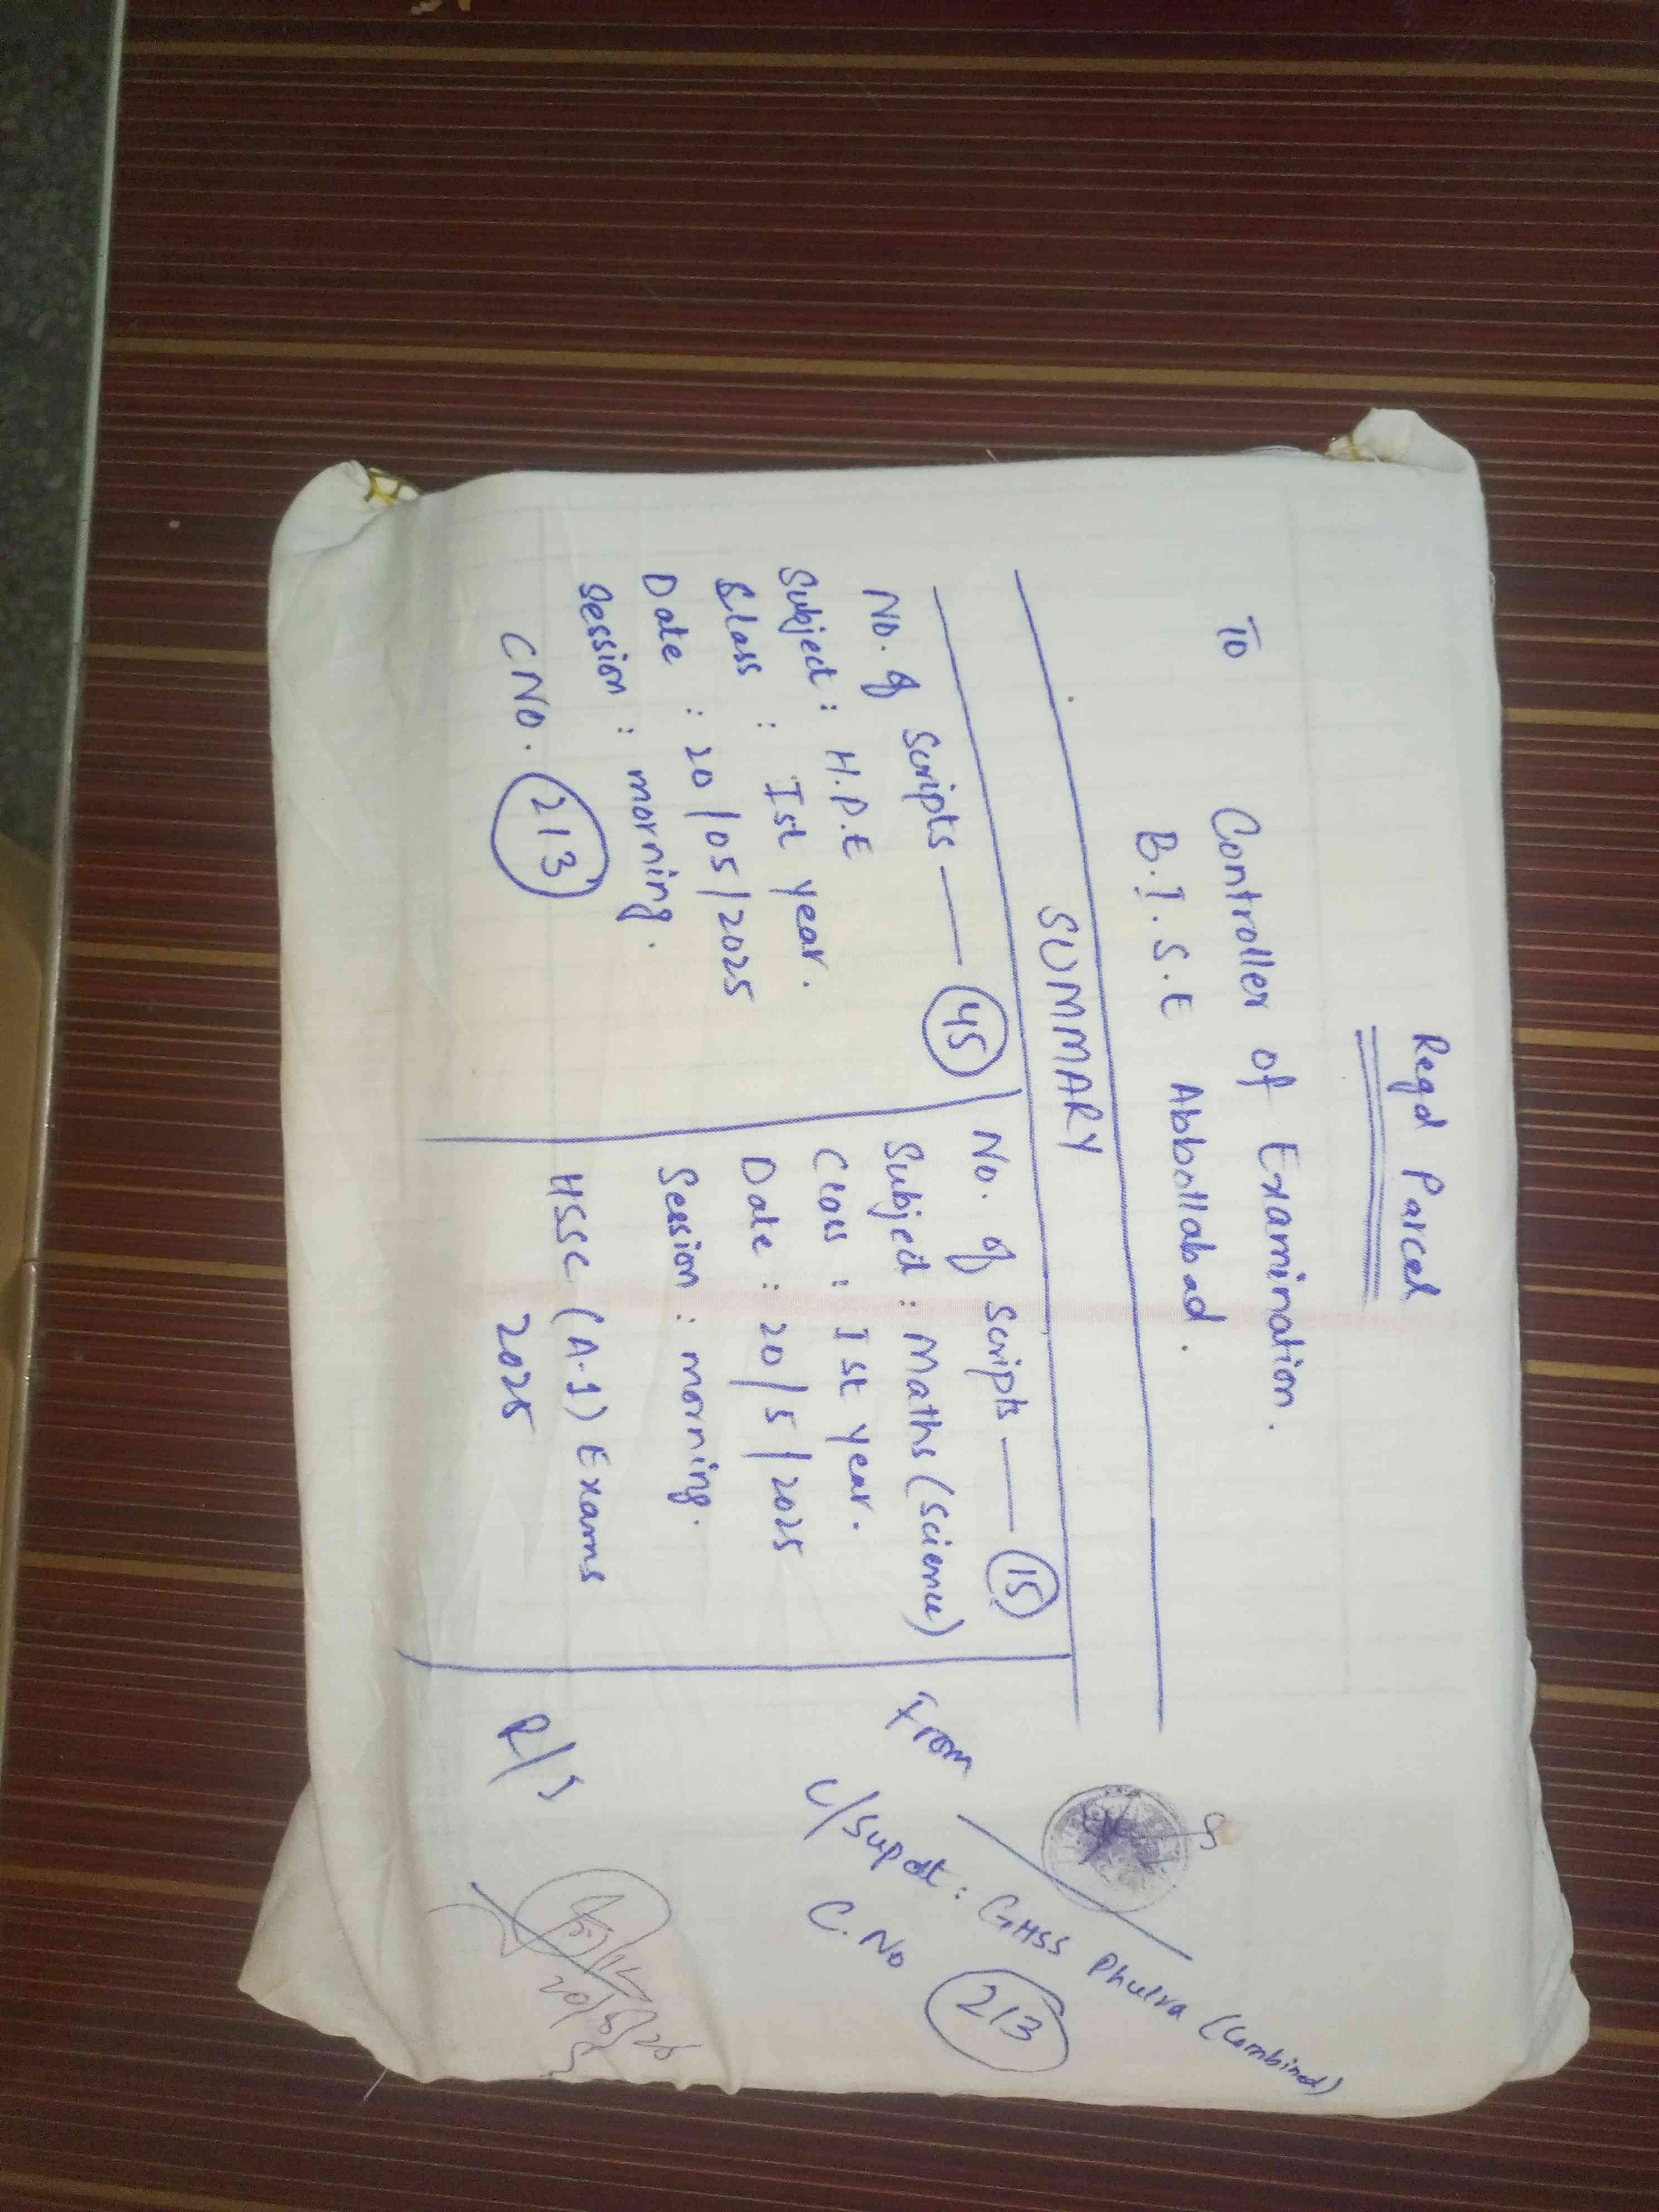 Regd Parcel
To
Controller of Examination.
B.I.S.E Abbottabad.
SUMMARY
No. of Scripts — 45
Subject : H.P.E
Class : Ist year.
Date : 20/05/2025
Session : morning.
CNO. 213
No. of Scripts — 15
Subject : Maths (Science)
Class : Ist year.
Date : 20/5/2025
Session : morning.
HSSC (A-1) Exams
2025
From
C/Supdt : GHSS Phulra (Combined)
C.No 213
R/S
20/5/25